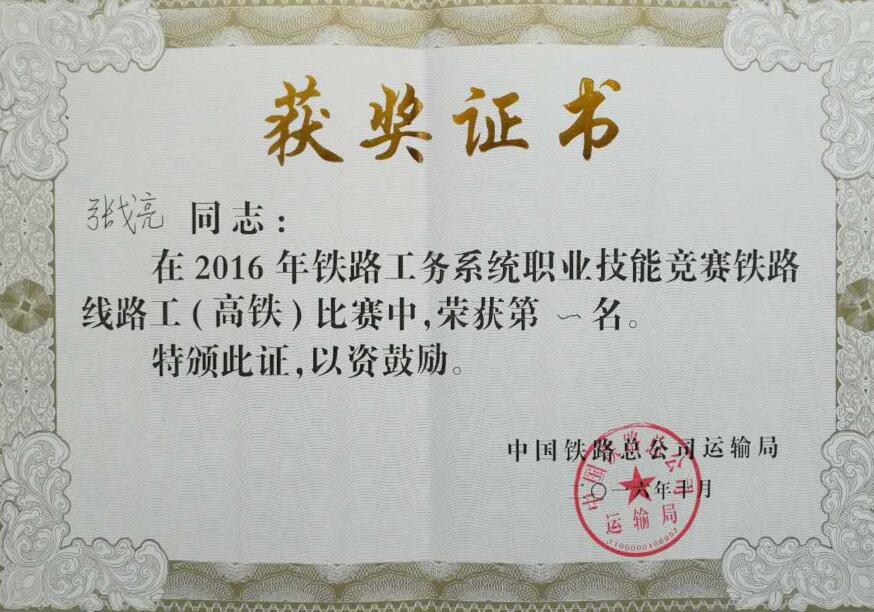 获奖证书
张戈亮 同志：
在2016年铁路工务系统职业技能竞赛铁路
线路工(高铁)比赛中,荣获第 一 名。
特颁此证,以资鼓励。
中国铁路总公司运输局
二〇一六年十月
中国铁路总公司
运输局